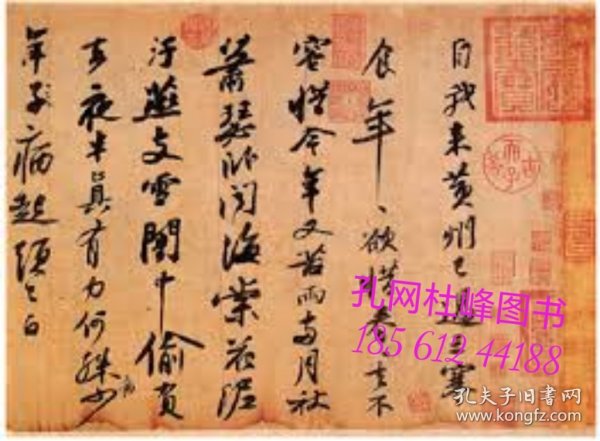 自我来黄州已過三寒
食年〻欲惜春〻去不
容惜今年又苦雨兩月秋
蕭瑟卧聞海棠花泥
汙燕支雪闇中偷負
去夜半真有力何殊少
年子病起頭已白
孔网杜峰图书
185 612 44188
孔夫子旧书网
www.kongfz.com